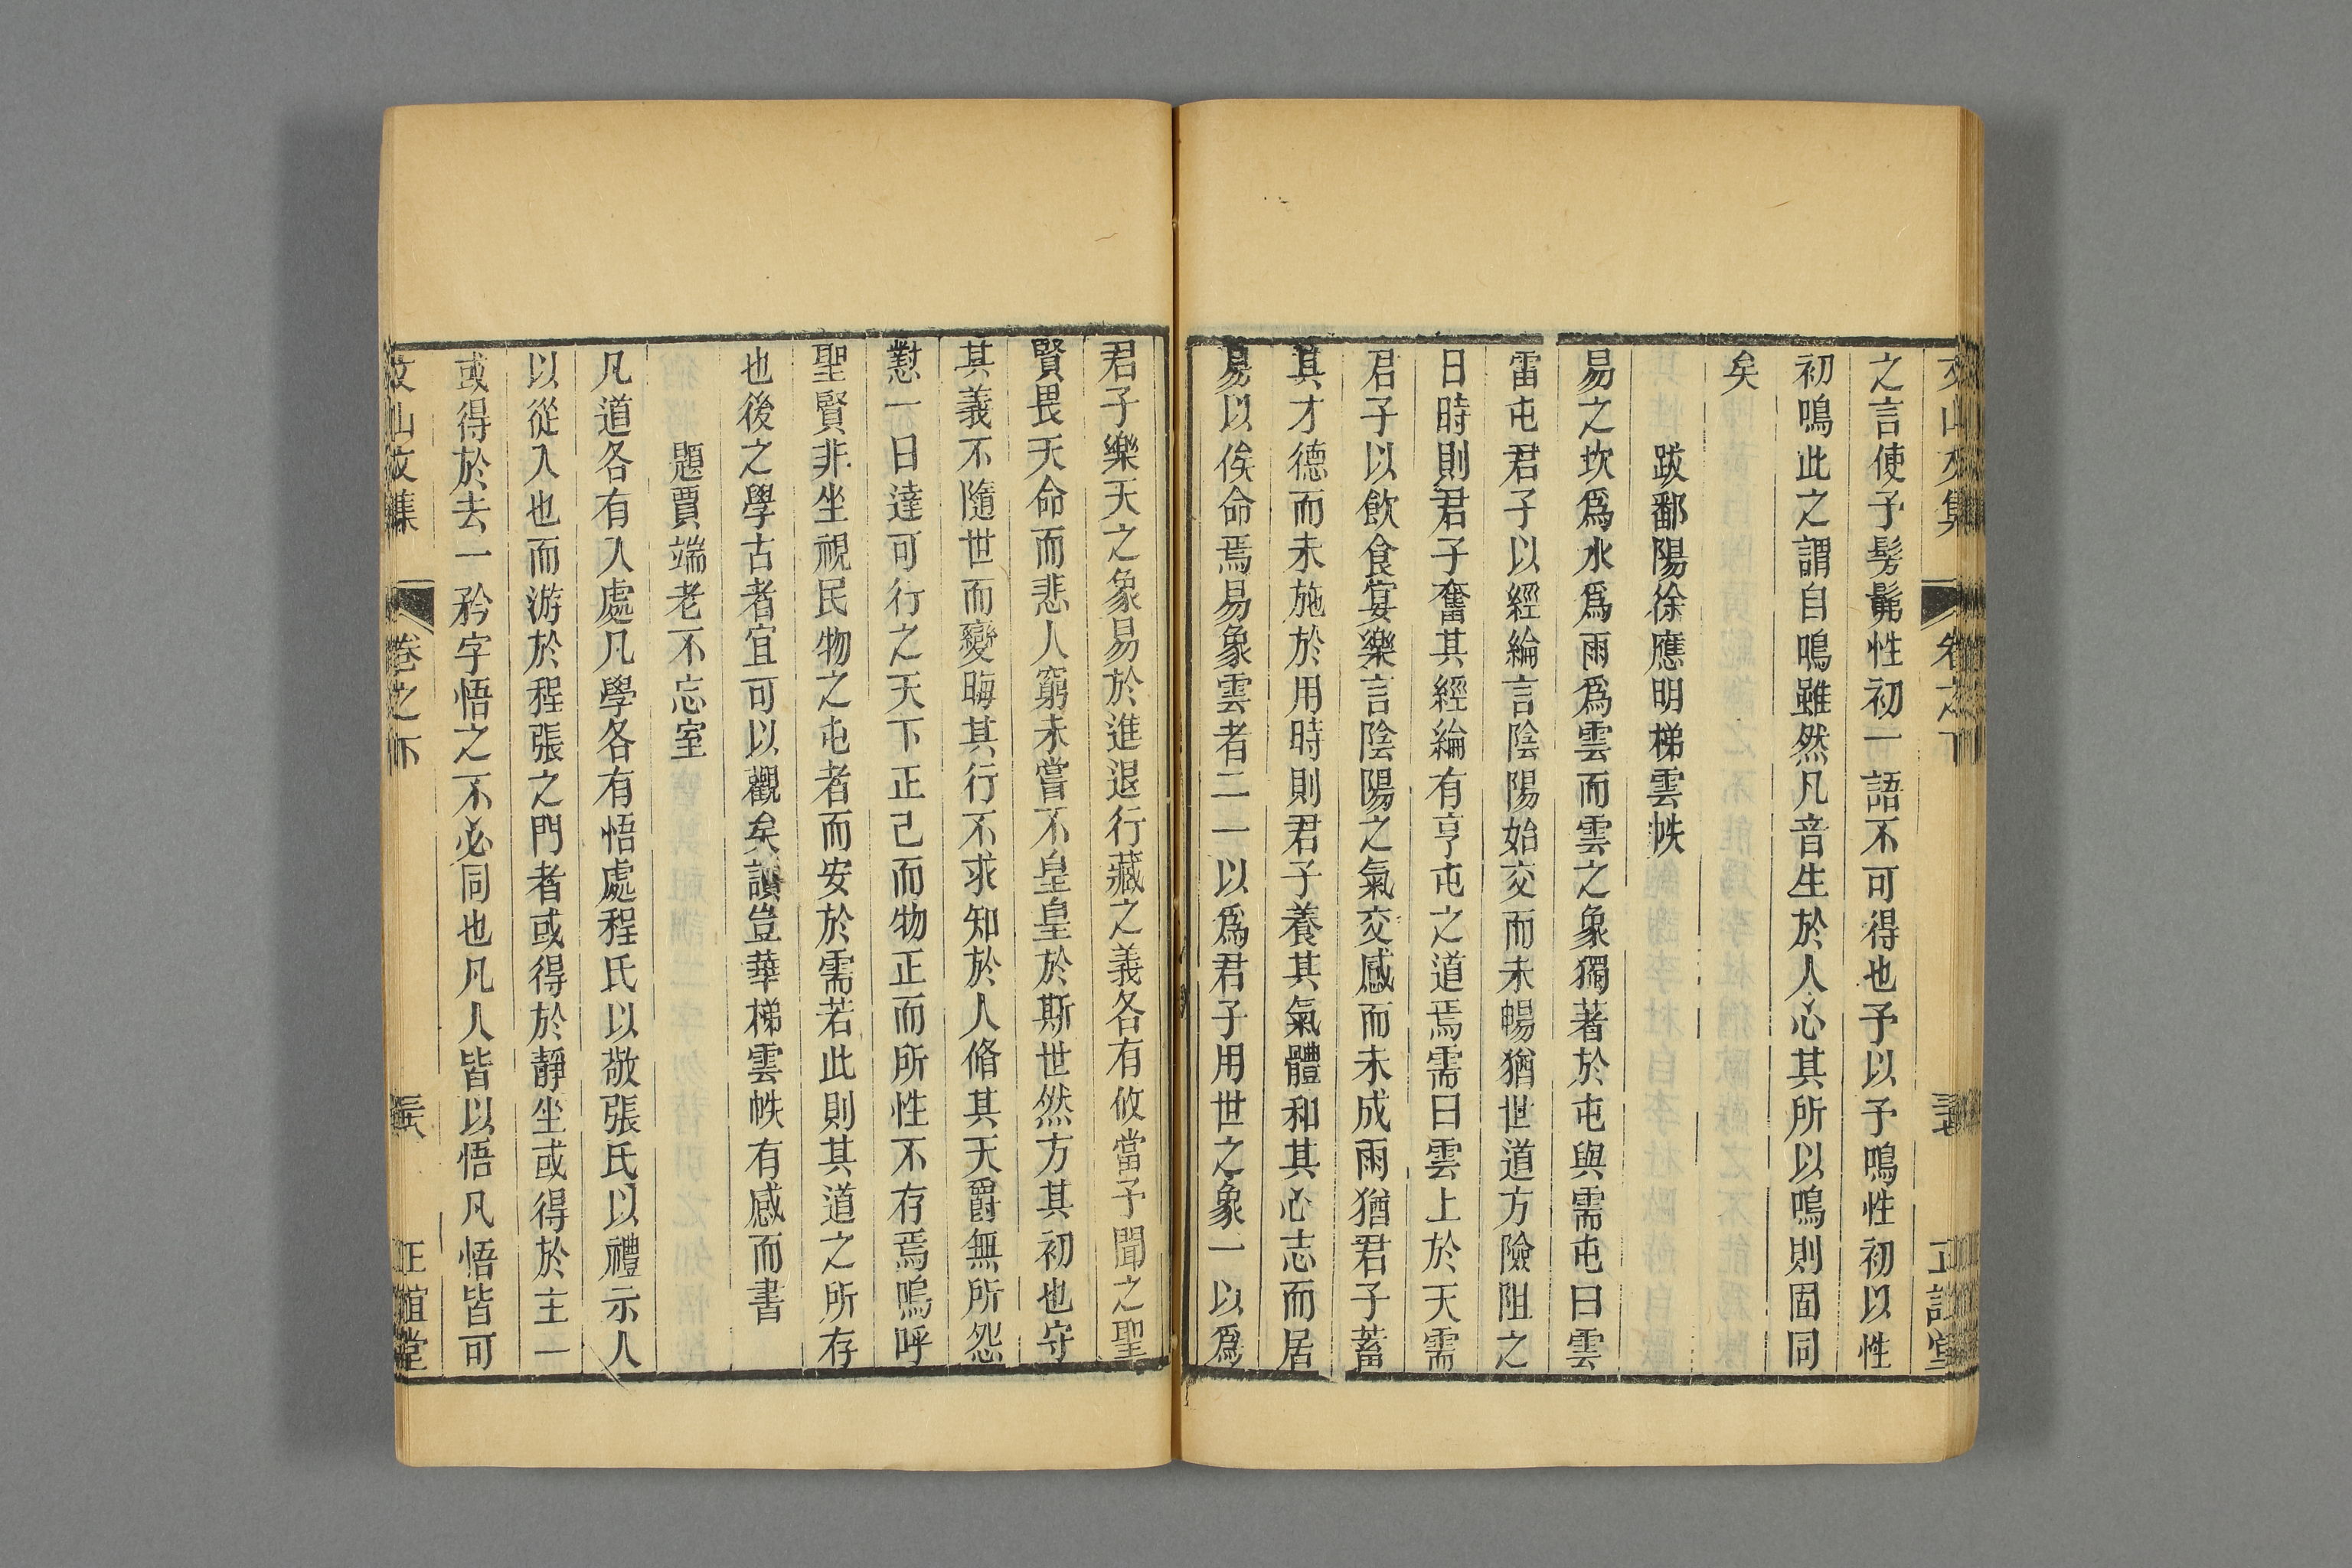 文山文集 卷之下 正誼堂
之言使予髣髴性初一語不可得也予以予鳴性初以性
初鳴此之謂自鳴雖然凡音生於人心其所以鳴則固同
矣
跋鄱陽徐應明梯雲帙
易之坎爲水爲雨爲雲而雲之象獨著於屯與需屯曰雲
雷屯君子以經綸言陰陽始交而未暢猶世道方險阻之
日時則君子奮其經綸有亨屯之道焉需曰雲上於天需
君子以飲食宴樂言陰陽之氣交感而未成雨猶君子蓄
其才德而未施於用時則君子養其氣體和其心志而居
易以俟命焉易象雲者二一以爲君子用世之象一以爲
君子樂天之象易於進退行藏之義各有攸當予聞之聖
賢畏天命而悲人窮未嘗不皇皇於斯世然方其初也守
其義不隨世而變晦其行不求知於人脩其天爵無所怨
懟一日達可行之天下正己而物正而所性不存焉嗚呼
聖賢非坐視民物之屯者而安於需若此則其道之所存
也後之學古者宜可以觀矣讀豈華梯雲帙有感而書
題賈端老不忘室
凡道各有入處凡學各有悟處程氏以敬張氏以禮示人
以從入也而游於程張之門者或得於靜坐或得於主一
或得於去一矜字悟之不必同也凡人皆以悟凡悟皆可
文山文集 卷之下 正誼堂